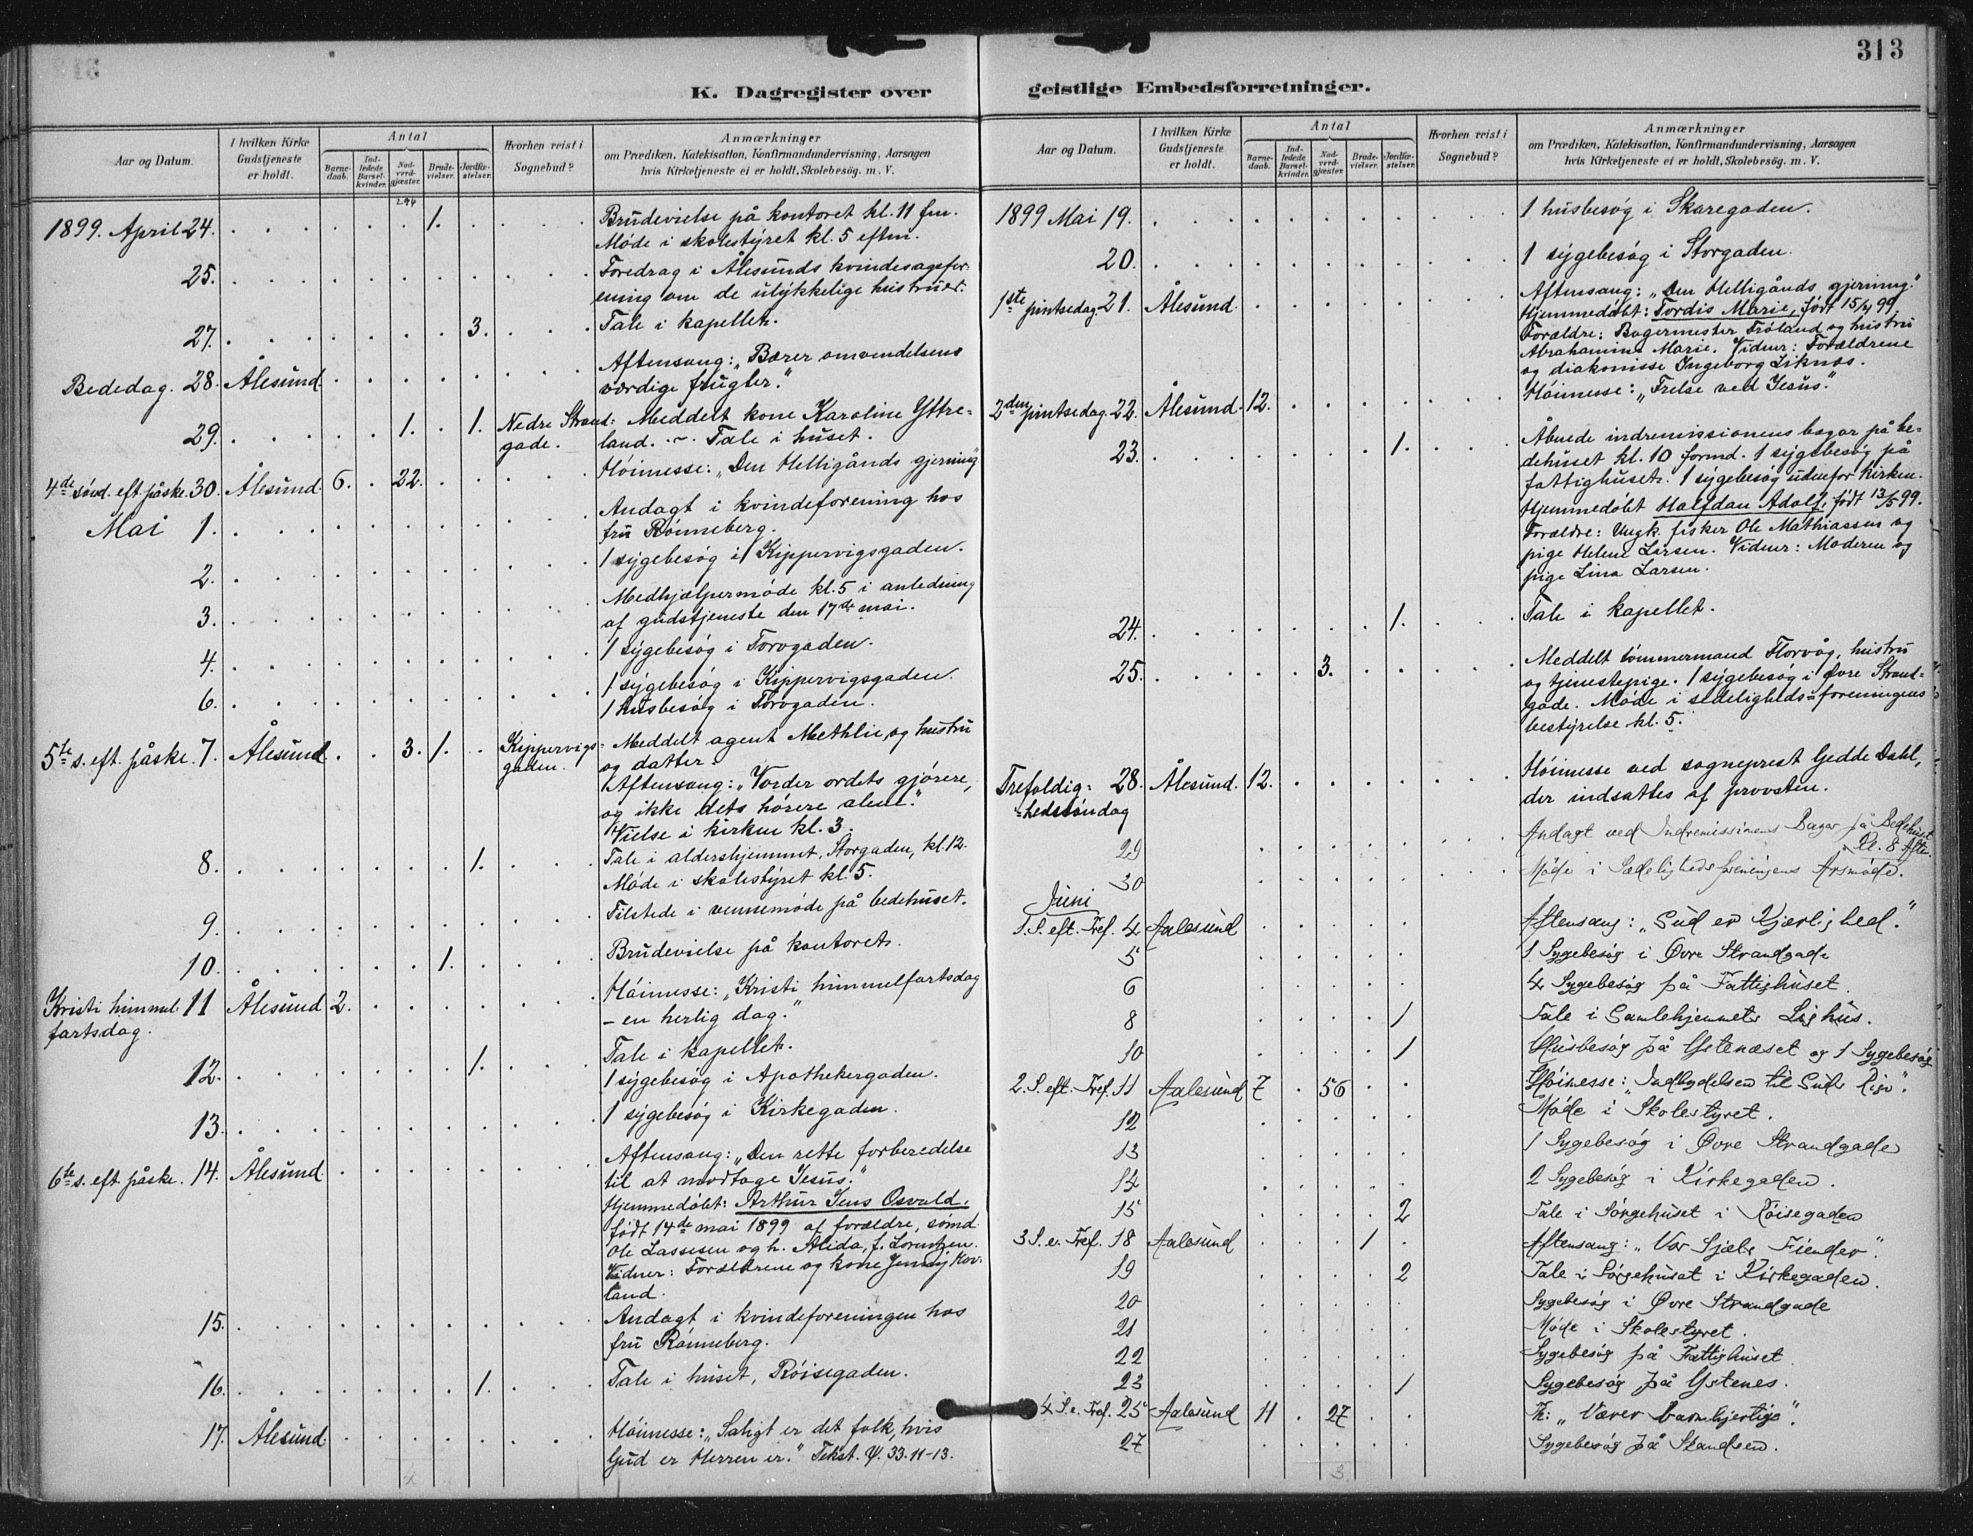 313
K. Dagregister over geistlige Embedsforretninger.
Aar og Datum.
I hvilken Kirke Gudstjeneste er holdt.
Antal
Barnedaab.
Indledede Barselkvinder.
Nadverdgjæster.
Brudevielser.
Jordfæstelser.
Hvorhen reist i Sognebud?
Anmærkninger
om Prædiken, Katekisation, Konfirmandundervisning, Aarsagen
hvis Kirketjeneste ei er holdt, Skolebesøg. m. V.
1899. April 24. 1. Brudevielse på kontoret kl. 11 fm.
Møde i skolestyret kl. 5 eftm.
25. Foredrag i Ålesunds kvindesagsfor-
ening om de ulykkelige hustruer.
27. 3. Tale i kapellet.
Bededag. 28. Ålesund Aftensang: „Bærer omvendelsens
værdige frugter."
29. 1. 1. Nedre Strand- Meddelt kone Karoline Yttre-
gade. land. — Tale i huset.
4de sønd. eft. påske. 30. Ålesund. 6. 22. Høimesse: „Den Helligånds gjerning"
Mai 1. Andagt i kvindeforening hos
fru Rønneberg.
2. 1 sygebesøg i Kippervigsgaden.
3. Medhjælpermøde kl. 5 i anledning
af gudstjeneste den 17de mai.
4. 1 sygebesøg i Torvgaden.
6. 1 sygebesøg i Kippervigsgaden.
1 husbesøg i Torvgaden.
5te s. eft. påske. 7. Ålesund 3. 1. Kippervigs- Meddelt agent Methlie og hustru
gaden. og datter.
Aftensang: „Vorder ordets gjørere,
og ikke dets hørere alene."
Vielse i kirken kl. 3.
8. 1. Tale i aldershjemmet, Storgaden, kl. 12.
Møde i skolestyret kl. 5.
9. Tilstede i vennemøde på bedehuset.
10. 1. Brudevielse på kontoret.
Kristi himmel- 11 Ålesund 2. Høimesse: „Kristi himmelfartsdag
fartsdag. – en herlig dag."
12. 1. Tale i kapellet.
1 sygebesøg i Apothekergaden.
13. 1 sygebesøg i Kirkegaden.
6te s. eft. påske. 14. Ålesund Aftensang: „Den rette forberedelse
til at modtage Jesus."
Hjemmedøbt: Arthur Jens Osvald,
født 14de mai 1899 af forældre, sømd.
Ole Lassesen og h. Alida, f. Lorentzen.
Vidner: Forældrene og kone Jenny Kor-
land.
15. Andagt i kvindeforeningen hos
fru Rønneberg.
16. 1. Tale i huset, Røisegaden.
17. Ålesund. Høimesse: „Saligt er det folk, hvis
Gud er Herren er." Tekst. Ψ. 33. 11-13.
Aar og Datum.
I hvilken Kirke Gudstjeneste er holdt.
Antal
Barnedaab.
Indledede Barselkvinder.
Nadverdgjæster.
Brudevielser.
Jordfæstelser.
Hvorhen reist i Sognebud?
Anmærkninger
om Prædiken, Katekisation, Konfirmandundervisning, Aarsagen
hvis Kirketjeneste ei er holdt, Skolebesøg. m. V.
1899 Mai 19. 1 husbesøg i Skaregaden.
20. 1 sygebesøg i Storgaden.
1ste pintsedag. 21. Ålesund. Aftensang: „Den Helligånds gjerning."
Hjemmedøbt: Tordis Marie, født 15/4 99.
Forældre: Bagermester Frøland og hustru
Abrahamine Marie. Vidner: Forældrene
og diakonisse Ingeborg Liknes.
2den pintsedag. 22. Ålesund. 12. Høimesse: „Frelse ved Jesus."
23. 1. Åbnede indremissionens bazar på be-
dehuset kl. 10 formd. 1 sygebesøg på
fattighuset. 1 sygebesøg udenfor kirken.
Hjemmedøbt Halfdan Adolf, født 13/5 99.
Forældre: Ungk. fisker Ole Mathiassen og
pige Helene Larsen. Vidner: Moderen og
pige Lina Larsen.
24. 1. Tale i kapellet.
25. 3. Meddelt tømmermand Florvåg, hustru
og tjenestepige. 1 sygebesøg i Øvre Strand-
gade. Møde i sedeligheds-foreningens
bestyrelse kl. 5.
Trefoldig- 28. Ålesund. 12. Høimesse ved sogneprest Gedde Dahl,
hedssøndag der indsattes af provsten.
29 Andagt ved Indremissionens Bazar på Bedehuset
Kl. 8 Aften.
30 Møde i Sædelighedsforeningens Årsmøde.
Juni
1. S. eft. Tref. 4 Aalesund Aftensang: „Gud er Kjærlighed."
5 1 Sygebesøg i Øvre Strandgade
6 4 Sygebesøg på Fattighuset.
8 1 Tale i Gamlehjemmets Lighus.
10 1 Husbesøg på Ystenæset og 1 Sygebesøg
2. S. eft. Tref. 11 Aalesund 7 56 Høimesse: „Indbydelsen til Guds Rige".
12 Møde i Skolestyret.
13 1 Sygebesøg i Øvre Strandgade
14 2 Sygebesøg i Kirkegaden.
15 2 Tale i Sørgehuset i Røisegaden
3 S. e. Tref. 18 Aalesund 1 Aftensang: „Vor Sjæls Fiender".
19 2 Tale i Sørgehuset i Kirkegaden.
20 Sygebesøg i Øvre Strandgade
21 Møde i Skolestyret.
22 Sygebesøg på Fattighuset.
23 1 Sygebesøg på Ystenes.
4 S. e. Tref. 25 Aalesund 11 27 H: „Værer barmhjertige".
27 Sygebesøg på Skandsen.
3